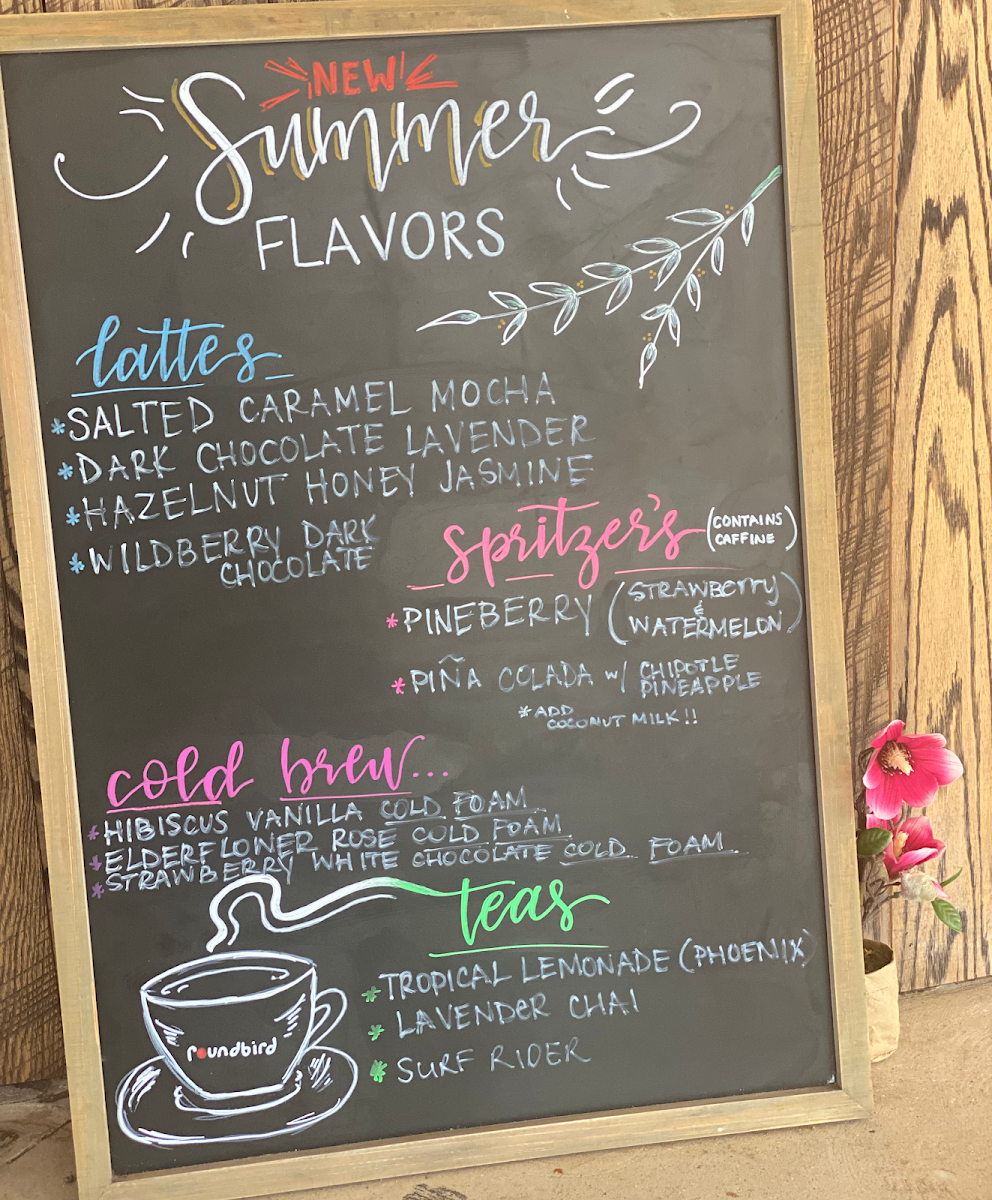 NEW
Summer
FLAVORS
lattes
*SALTED CARAMEL MOCHA
*DARK CHOCOLATE LAVENDER
*HAZELNUT HONEY JASMINE
*WILDBERRY DARK
CHOCOLATE
spritzer's (CONTAINS
CAFFINE)
*PINEBERRY (STRAWBERRY
&
WATERMELON)
*PIÑA COLADA W/ CHIPOTLE
PINEAPPLE
*ADD
COCONUT MILK!!
cold brew...
*HIBISCUS VANILLA COLD FOAM
*ELDERFLOWER ROSE COLD FOAM
*STRAWBERRY WHITE CHOCOLATE COLD FOAM
teas
*TROPICAL LEMONADE (PHOENIX)
*LAVENDER CHAI
*SURF RIDER
roundbird